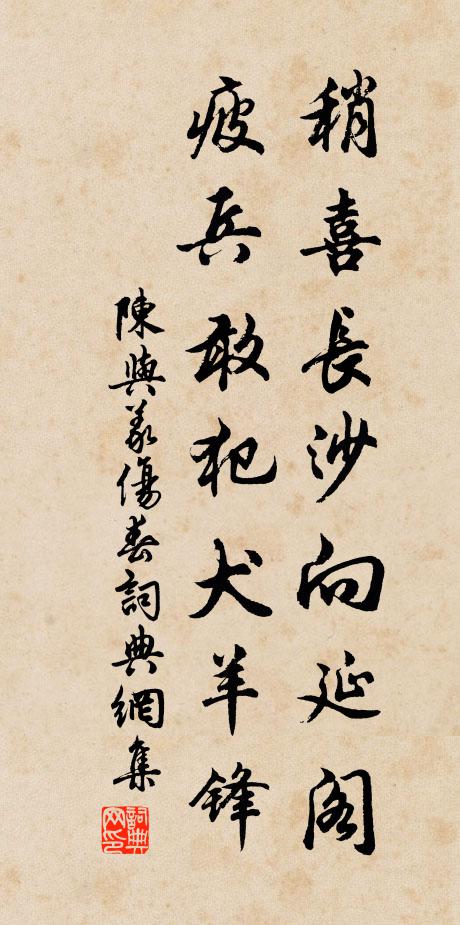 稍喜長沙向延閣
疲兵敢犯犬羊鋒
陳與義傷春詞典網集
詞典网印